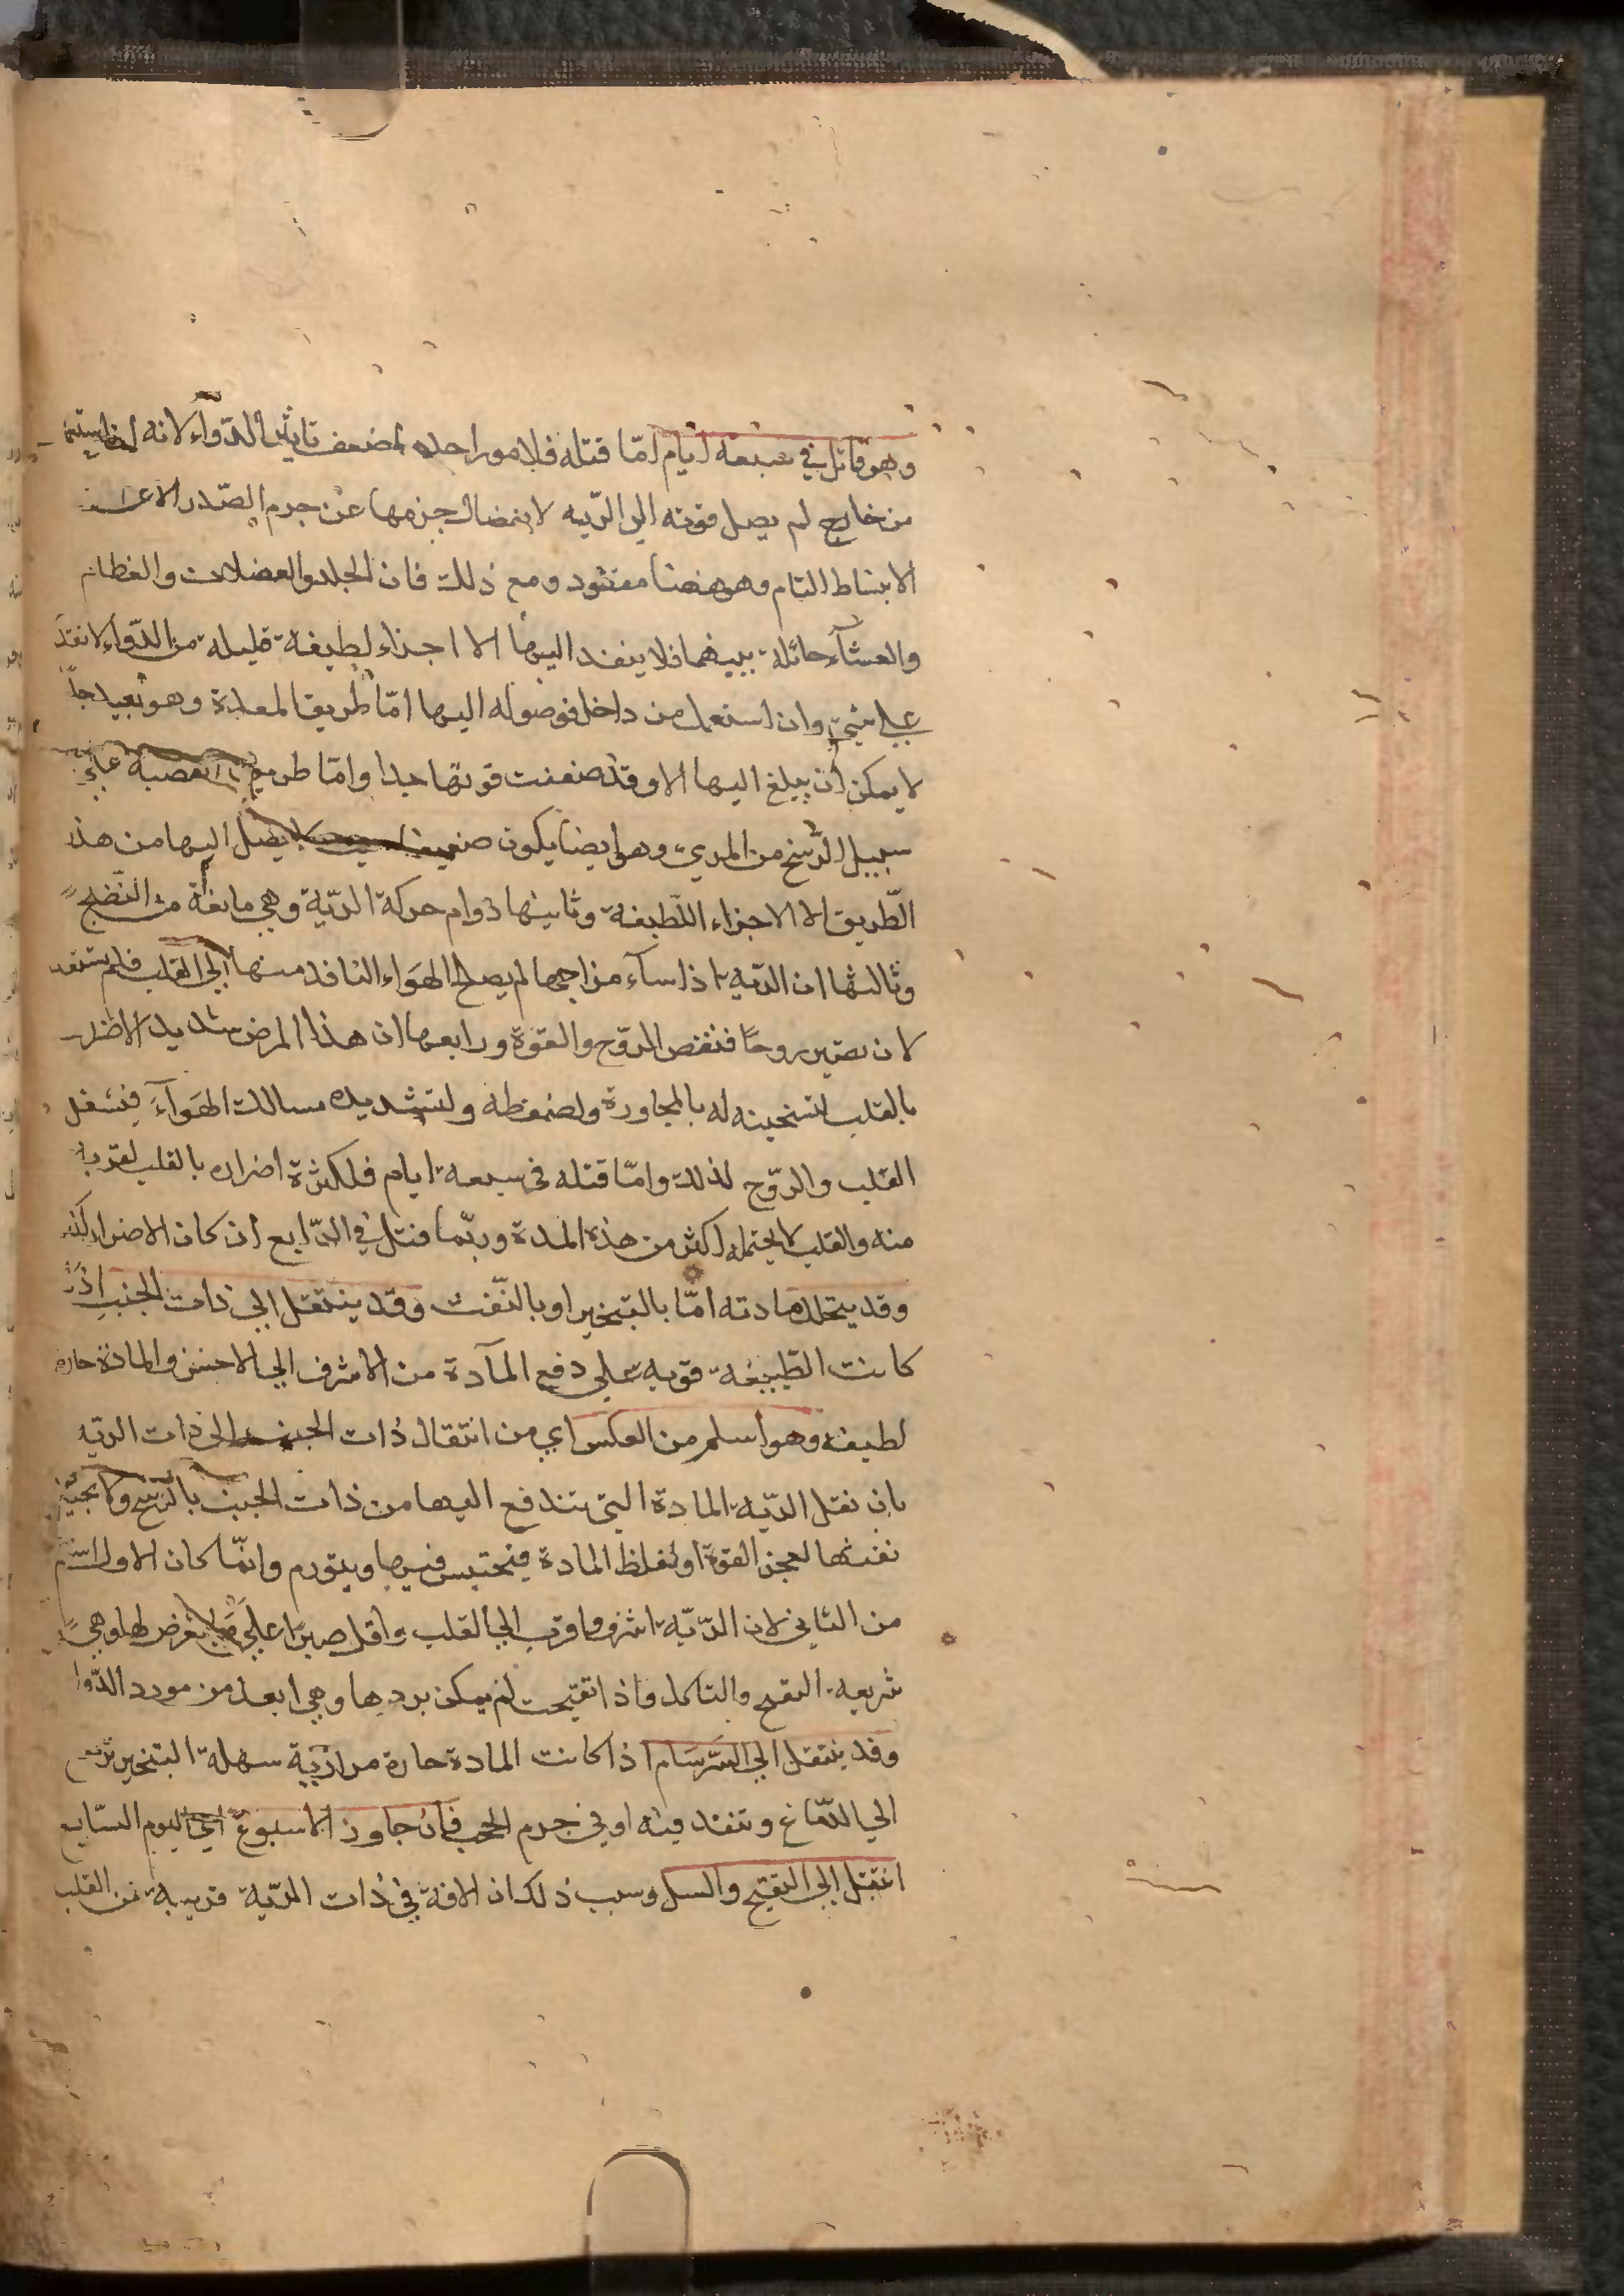 وهو قاتل في سبعة ايام امّا قتله فلامور احدها ضعف تاثير الدّواء لانه
من خارج لم يصل قوته الي الريّه لانفصال جرمها عن جرم الصّدر الا عند
الانبساط التام وهو ههنا مفقود ومع ذلك فان الجلد والعضلات والعظام
والغشآء حائلة بينهما فلا ينفد اليها الا اجزاء لطيفة قليلة من الدّواء لا تقدر
علي شيء وان استعمل من داخل فوصوله اليها امّا طريق المعدة وهو بعيد جدّا
لا يمكن ان يبلغ اليها الا وقد ضعفت قوتها جدا وامّا طريق القصبة علي
سبيل الرّشح من المري وهو ايضا يكون ضعيفا لا يصل اليها من هذه
الطّريق الا الاجزاء اللّطيفة وثانيها دوام حركة الريّة وهي مانعة من النّضج
وثالثها ان الريّه اذا سآء مزاجها لم يصلح الهَواء النافد منها الي القلب فلم يستعد
لان يصير روحًا فنقص الرّوح والقوة ورابعها ان هذا المرض شديد الاضرار
بالقلب لتسخينه له بالمجاورة ولضغطه ولتشديده مسالك الهَوآءَ فيشغل
القلب والرّوح لذلك وامّا قتله في سبعة ايام فلكثرة اضراره بالقلب لقربه
منه والقلب لا يحتمله اكثر من هذه المدة وربّما قتل في الرّابع ان كان الاضرار
وقد يتحلل مادته امّا بالتبخير او بالنّفث وقد ينتقل الي ذات الجنب اذا
كانت الطّبيعة قويه علي دفع المآدة من الاشرف الي الاخس والمادة حارة
لطيفه وهو اسلم من العكس اي من انتقال ذات الجنب الي ذات الريّه
بان تقبل الريّة المادة التي تندفع اليها من ذات الجنب بالرّشح
نفثها لعجز القوة او لغلظ المادة فيحتبس فيها ويتورم وانّما كان الاول اسلم
من الثاني لان الريّة اشرف واقرب الي القلب واقل صبرًا علي ما يعرض لها وهي
سريعه التقيح والتاكل فاذا تقيحت لم يمكن بروها وهي ابعد من مورد الدّوا
وقد ينتقل الي السَرسَام اذا كانت المادة حارة مراريّة سهلة التبخير ترتفع
الي الدّماغ وتنفد فيه او في جرم الحجب فان جاوز الاسبوع اي اليوم السّابع
انتقل الي التقيح والسل وسبب ذلك ان الافة في ذات الريّة قريبة من القلب